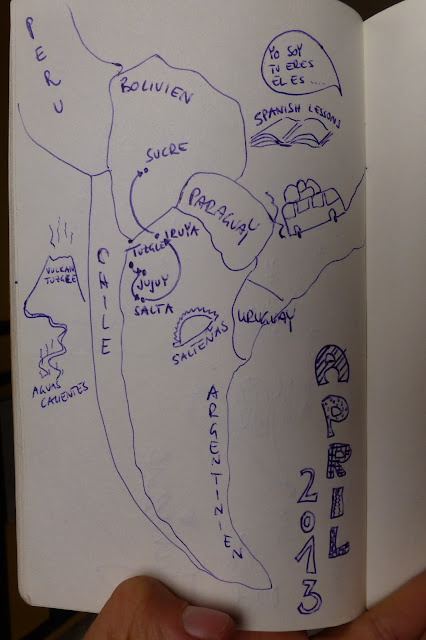 PERU
BOLIVIEN
YO SOY
TU ERES
EL ES ....
SPANISH LESSONS
SUCRE
PARAGUAY
IRUYA
TUZGLE
JUJUY
SALTA
CHILE
VULCAN
TUZGRE
AGUAS
CALIENTES
SALTEÑAS
URUGUAY
ARGENTINIEN
APRIL
2013